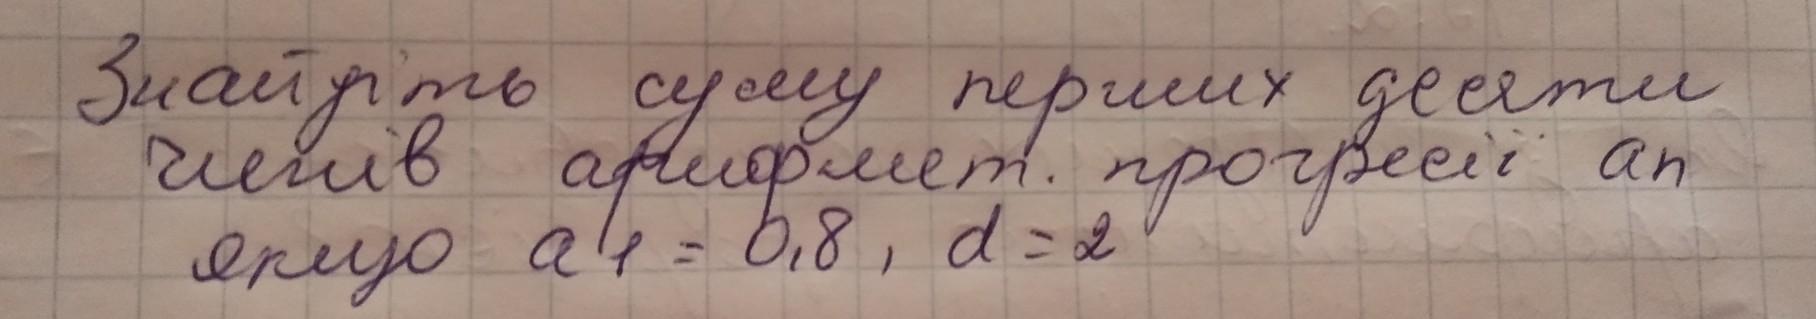 Знайдіть суму перших десяти
членів арифмет. прогресії an
якщо a1 = 0,8, d = 2